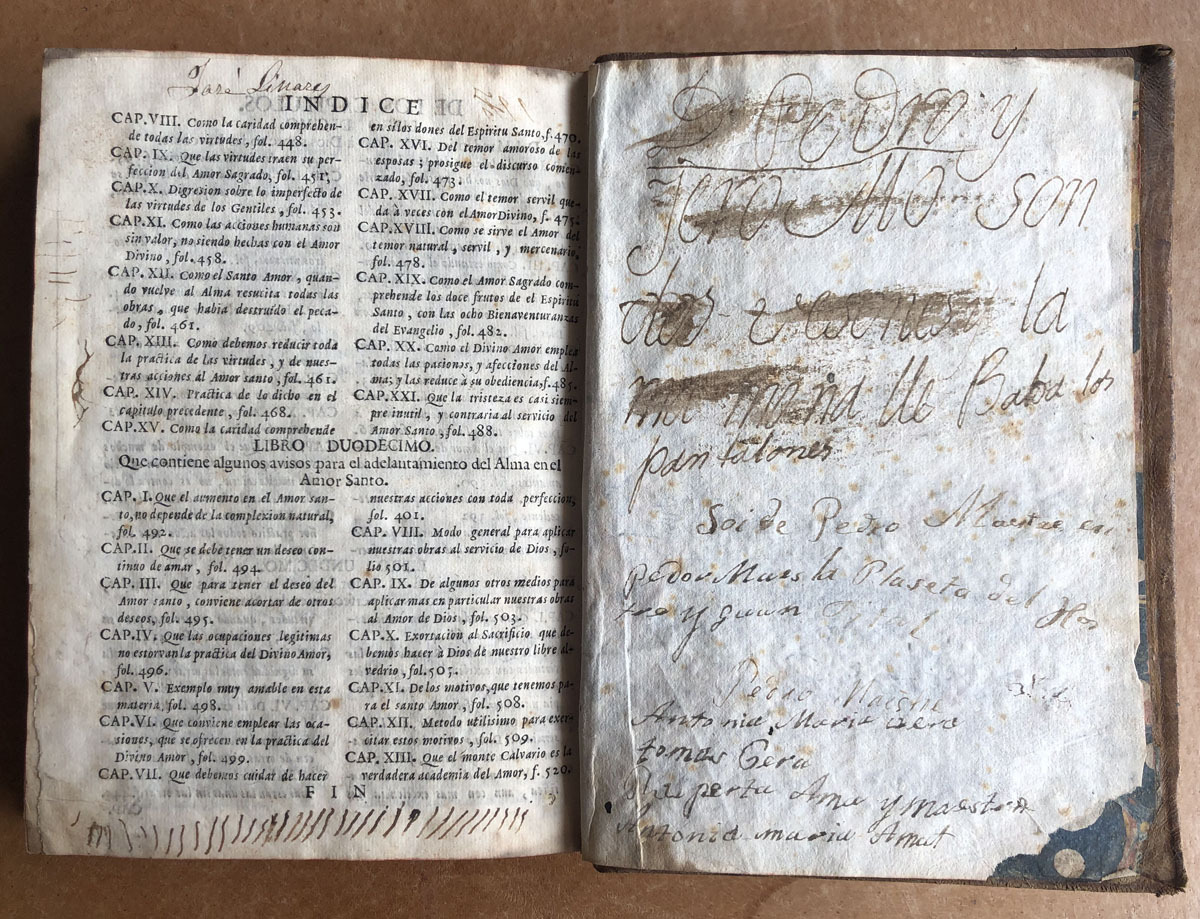 José Linares
INDICE
CAP. VIII. Como la caridad comprehen-
de todas las virtudes, fol. 448.
CAP. IX. Que las virtudes traen su per-
feccion del Amor Sagrado, fol. 451.
CAP. X. Digresion sobre lo imperfecto de
las virtudes de los Gentiles, fol. 453.
CAP. XI. Como las acciones humanas son
sin valor, no siendo hechas con el Amor
Divino, fol. 458.
CAP. XII. Como el Santo Amor, quan-
do vuelve al Alma resucita todas las
obras, que habia destruìdo el peca-
do, fol. 461.
CAP. XIII. Como debemos reducir toda
la practica de las virtudes, y de nues-
tras acciones al Amor santo, fol. 461.
CAP. XIV. Practica de lo dicho en el
capitulo precedente, fol. 468.
CAP. XV. Como la caridad comprehende
en sì los dones del Espiritu Santo, f. 470.
CAP. XVI. Del temor amoroso de las
esposas; prosigue el discurso comen-
zado, fol. 473.
CAP. XVII. Como el temor servil que-
da à veces con el Amor Divino, f. 475.
CAP. XVIII. Como se sirve el Amor del
temor natural, servil, y mercenario,
fol. 478.
CAP. XIX. Como el Amor Sagrado com-
prehende los doce frutos de el Espiritu
Santo, con las ocho Bienaventuranzas
del Evangelio, fol. 482.
CAP. XX. Como el Divino Amor emplea
todas las pasiones, y afecciones del Al-
ma; y las reduce à su obediencia, f. 485.
CAP. XXI. Que la tristeza es casi siem-
pre inutil, y contraria al servicio del
Amor Santo, fol. 488.
LIBRO DUODECIMO.
Que contiene algunos avisos para el adelantamiento del Alma en el
Amor Santo.
CAP. I. Que el aumento en el Amor san-
to, no depende de la complexion natural,
fol. 492.
CAP. II. Que se debe tener un deseo con-
tinuo de amar, fol. 494.
CAP. III. Que para tener el deseo del
Amor santo, conviene acortar de otros
deseos, fol. 495.
CAP. IV. Que las ocupaciones legitimas
no estorvan la practica del Divino Amor,
fol. 496.
CAP. V. Exemplo muy amable en esta
materia, fol. 498.
CAP. VI. Que conviene emplear las oca-
siones, que se ofrecen en la practica del
Divino Amor, fol. 499.
CAP. VII. Que debemos cuidar de hacer
nuestras acciones con toda perfeccion,
fol. 401.
CAP. VIII. Modo general para aplicar
nuestras obras al servicio de Dios, fo-
lio 501.
CAP. IX. De algunos otros medios para
aplicar mas en particular nuestras obras
al Amor de Dios, fol. 503.
CAP. X. Exortacion al Sacrificio que de-
bemos hacer à Dios de nuestro libre al-
vedrio, fol. 507.
CAP. XI. De los motivos, que tenemos pa-
ra el santo Amor, fol. 508.
CAP. XII. Metodo utilisimo para exer-
citar estos motivos, fol. 509.
CAP. XIII. Que el monte Calvario es la
verdadera academia del Amor, f. 520.
FIN
Pedro y
son
dos la
de Baba los
pantalones
Soi de Pedro
Plaseta del
tro y guan
Pedro
Antonia Maria
tomas Gera
Ama y maestra
Antonia maria Amat